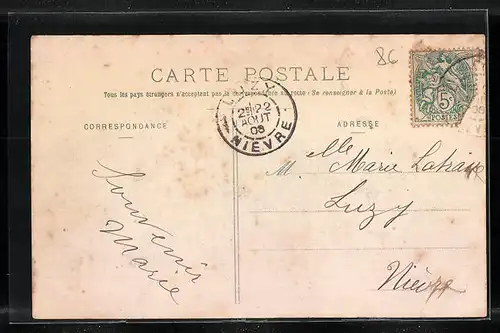 86
CARTE POSTALE
Tous les pays étrangers n'acceptent pas la correspondance au recto : (Se renseigner à la Poste)
LUZY
22
AOUT
08
NIÈVRE
5
POSTES
CORRESPONDANCE
ADRESSE
M elle Marie
Luzy
Nièvre
Souvenir
Marie